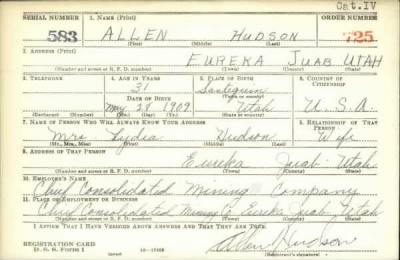 Cat. IV
SERIAL NUMBER 1. NAME (Print) ORDER NUMBER
583 ALLEN HUDSON 725
(First) (Middle) (Last)
2. ADDRESS (Print)
EUREKA JUAB UTAH
(Number and street or R. F. D. number) (Town) (County) (State)
3. TELEPHONE 4. AGE IN YEARS 5. PLACE OF BIRTH 6. COUNTRY OF CITIZENSHIP
31 Santiquin
DATE OF BIRTH (Town or county)
May 28 1909 Utah U.S.A.
(Exchange) (Number) (Mo.) (Day) (Yr.) (State or country)
7. NAME OF PERSON WHO WILL ALWAYS KNOW YOUR ADDRESS 8. RELATIONSHIP OF THAT PERSON
Mrs Lydia Hudson Wife
(Mr., Mrs., Miss) (First) (Middle) (Last)
9. ADDRESS OF THAT PERSON
Eureka Juab Utah
(Number and street or R. F. D. number) (Town) (County) (State)
10. EMPLOYER'S NAME
Chief Consolidated Mining Company
11. PLACE OF EMPLOYMENT OR BUSINESS
Chief Consolidated Mining Co Eureka Juab Utah
(Number and street or R. F. D. number) (Town) (County) (State)
I AFFIRM THAT I HAVE VERIFIED ABOVE ANSWERS AND THAT THEY ARE TRUE.
REGISTRATION CARD Allen Hudson
D. S. S. Form 1 (Registrant's signature)